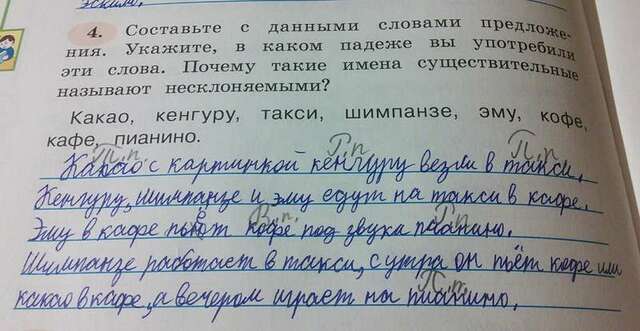 эскимо.
4. Составьте с данными словами предложе-
ния. Укажите, в каком падеже вы употребили
эти слова. Почему такие имена существительные
называют несклоняемыми?
Какао, кенгуру, такси, шимпанзе, эму, кофе,
кафе, пианино.
П.п Р.п П.п
Какао с картинкой кенгуру везли в такси.
Кенгуру, шимпанзе и эму едут на такси в кафе.
В.п.
Эму в кафе пьют кофе под звуки пианино.
Шимпанзе работает в такси, с утра он пьёт кофе или
какао в кафе, а вечером играет на пианино.